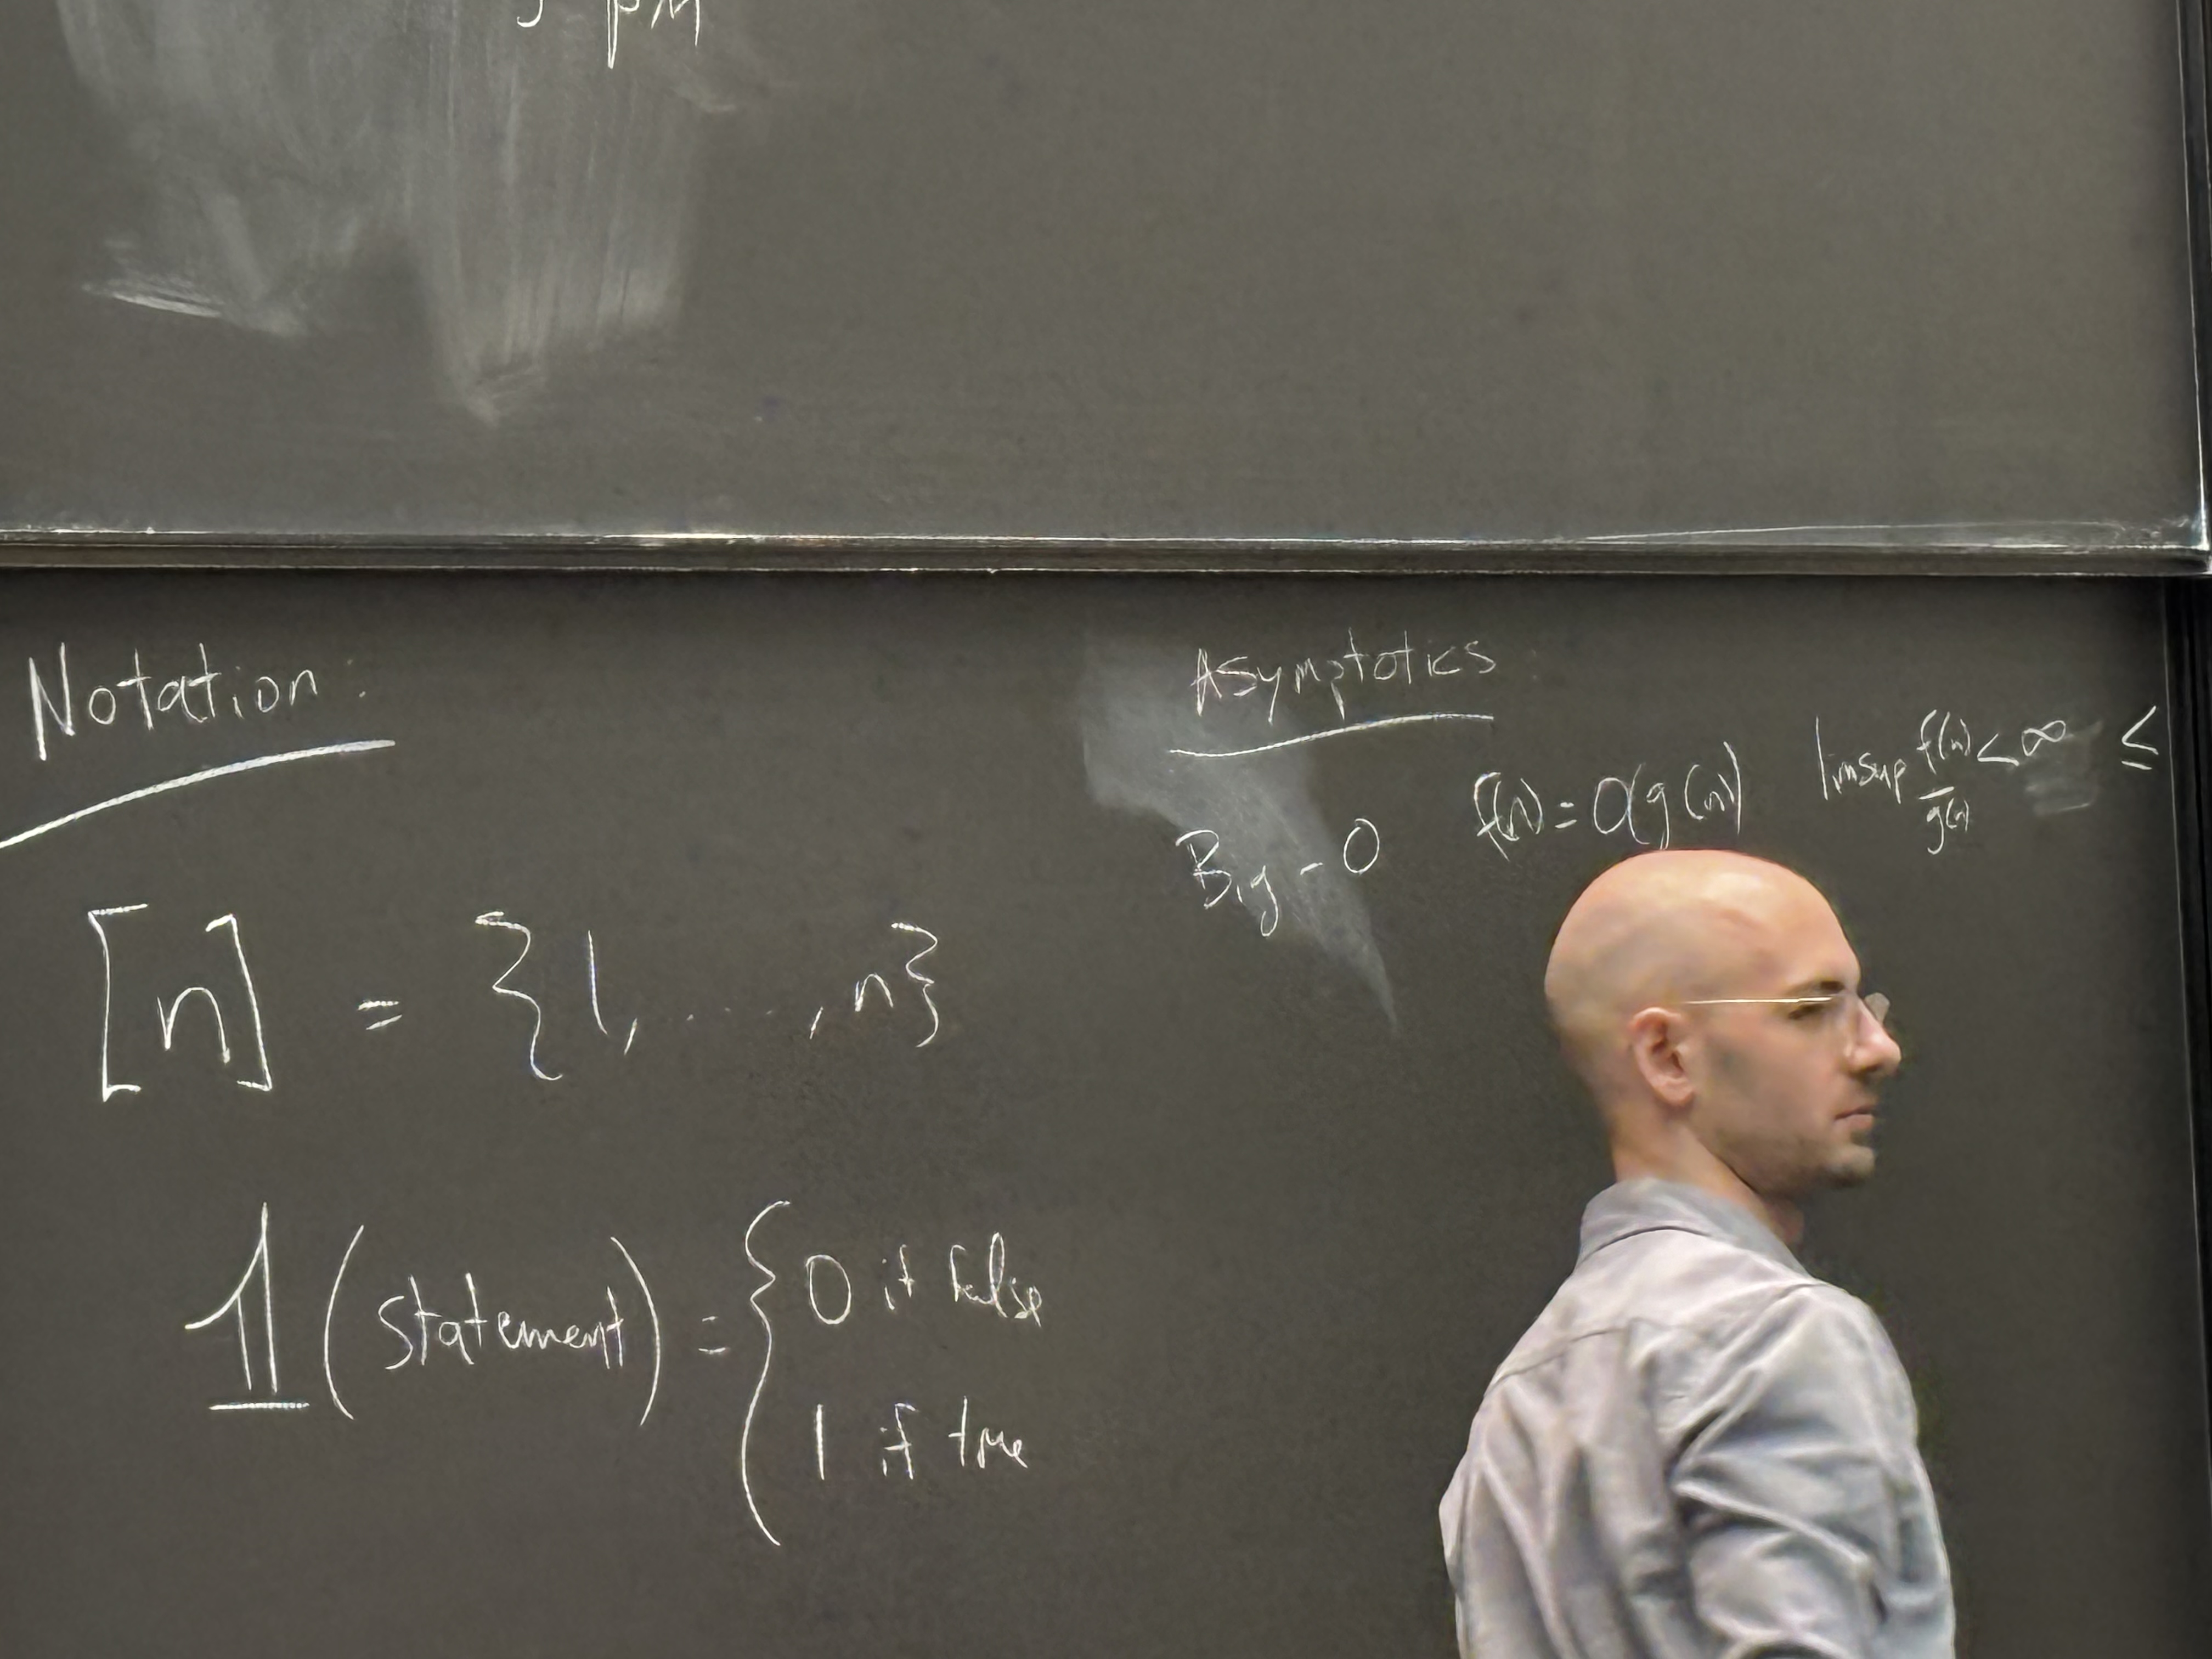 5 pM
Notation:
[n] = {1, ...., n}
𝟙 (statement) = { 0 if false
1 if true
Asymptotics:
Big-O f(n) = O(g(n)) limsup f(n)/g(n) < ∞ ≤